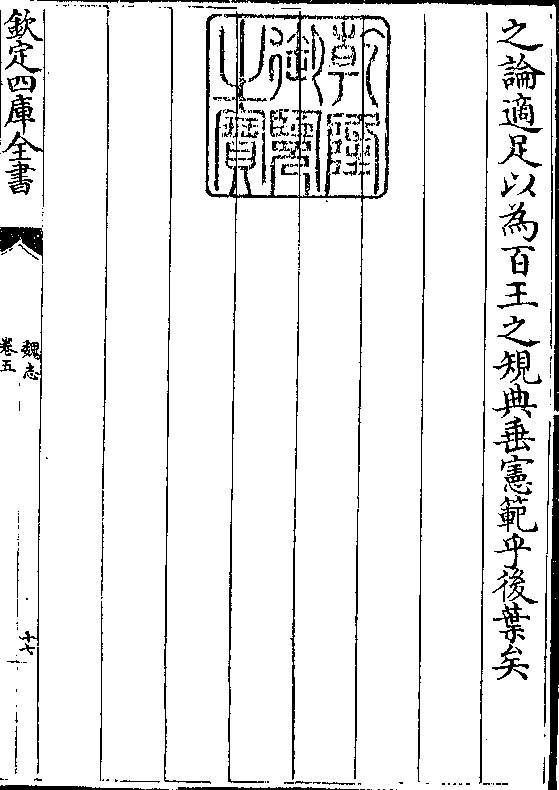 之論適足以為百王之規典垂憲範乎後葉矣
乾隆
御覽
之寶
欽定四庫全書
魏志
卷五
十七